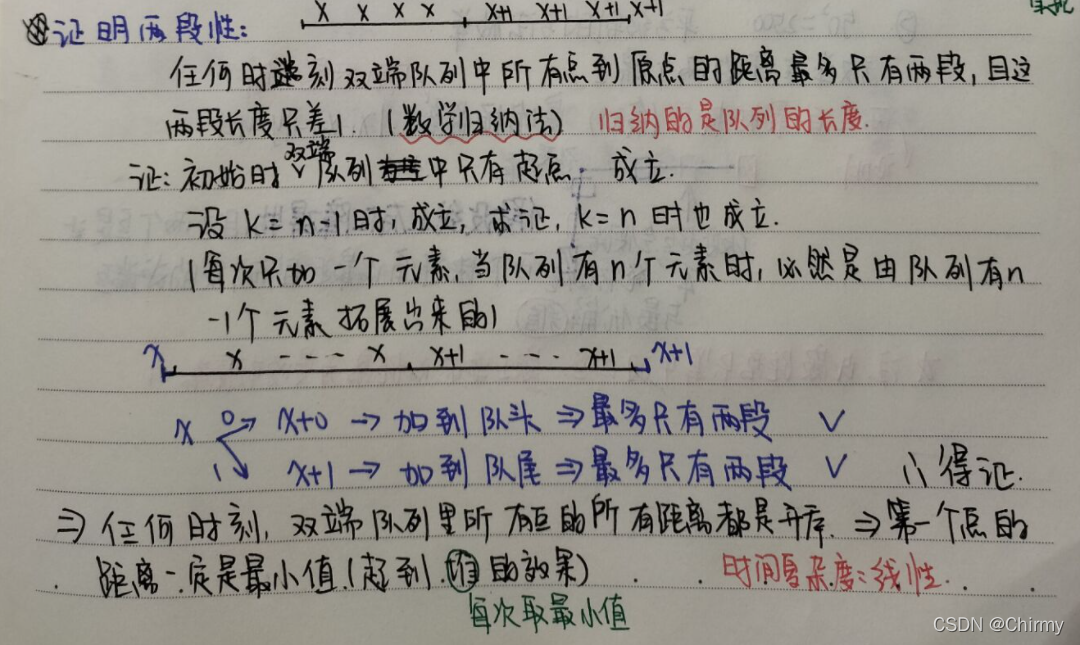 x x x x x+1 x+1 x+1 x+1
证明两段性:
任何时刻双端队列中所有点到原点的距离最多只有两段,且这
两段长度只差1. (数学归纳法) 归纳的是队列的长度.
证:初始时双端队列中只有起点. 成立.
设k=n-1时,成立,求证,k=n时也成立.
(每次只加一个元素,当队列有n个元素时,必然是由队列有n
-1个元素拓展出来的)
x x ---- x x+1 --- x+1 x+1
x 0 x+0 → 加到队头 ⇒ 最多只有两段 √
1 x+1 → 加到队尾 ⇒ 最多只有两段 √ ∴得证.
⇒ 任何时刻,双端队列里所有的所有距离都是升序. ⇒ 第一个点的
距离一定是最小值.(起到 的效果) 时间复杂度:线性.
每次取最小值
CSDN @Chirmy